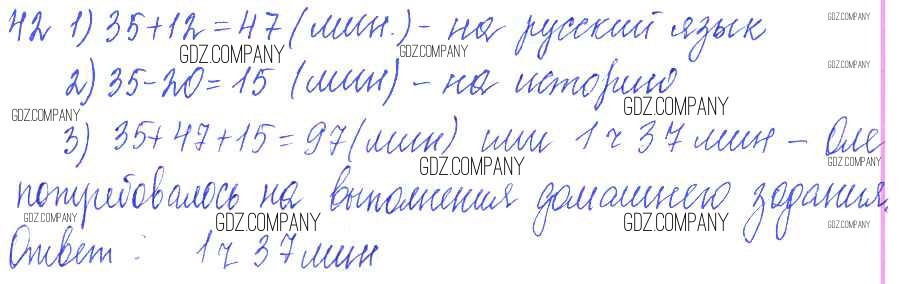 42 1) 35+12=47 (мин.) – на русский язык
2) 35-20=15 (мин) – на историю
3) 35+47+15=97 (мин) или 1 ч 37 мин – Оле
потребовалось на выполнения домашнего задания.
Ответ: 1 ч 37 мин
GDZ.COMPANY
GDZ.COMPANY
GDZ.COMPANY
GDZ.COMPANY
GDZ.COMPANY
GDZ.COMPANY
GDZ.COMPANY
GDZ.COMPANY
GDZ.COMPANY
GDZ.COMPANY
GDZ.COMPANY
GDZ.COMPANY